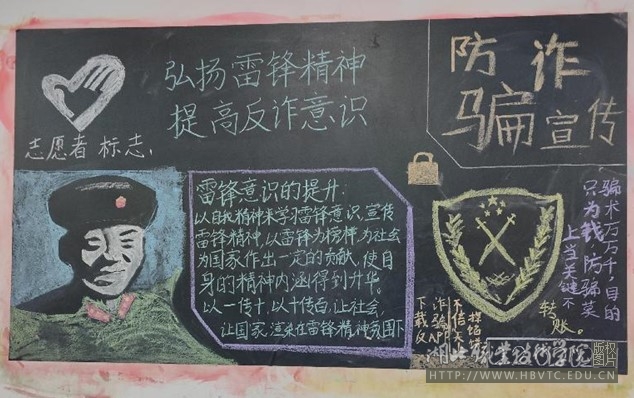 弘扬雷锋精神
提高反诈意识
志愿者标志
防诈
骗宣传
雷锋意识的提升:
以自我精神来学习雷锋意识,宣传
雷锋精神,以雷锋为榜样,为社会
为国家作出一定的贡献,使自
身的精神内涵得到升华。
以一传十,以十传百,让社会,
让国家,渲染在雷锋精神氛围下
骗术万万千,目的
只为钱,防骗莫
上当关键不
转账。
不信天
诈骗APP
下载反
湖北职业技术学院
版权
图片
HTTP://WWW.HBVTC.EDU.CN